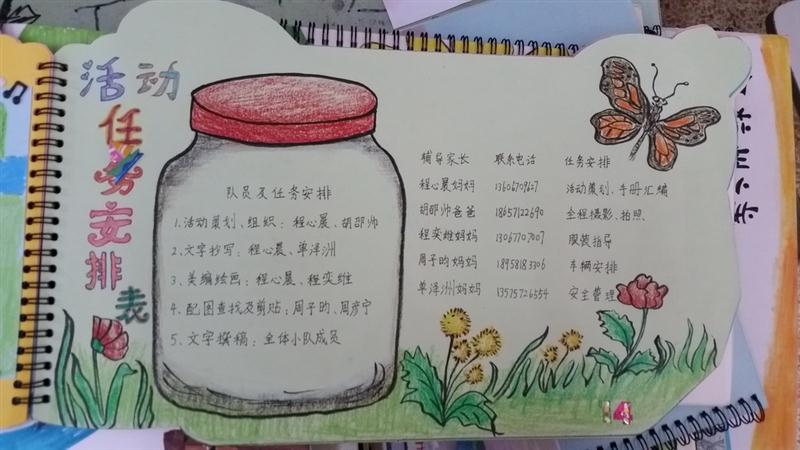 活动任务安排表
队员及任务安排
1.活动策划、组织：程心晨、胡邵帅
2.文字抄写：程心晨、单洋洲
3.美编绘画：程心晨、程奕维
4.配图查找及剪贴：周子昀、周彦宁
5.文字撰稿：全体小队成员
辅导家长 联系电话 任务安排
程心晨妈妈 13606709627 活动策划、手册汇编
胡邵帅爸爸 18657122690 全程摄影、拍照
程奕维妈妈 13067707007 服装指导
周子昀妈妈 18958183306 车辆安排
单洋洲妈妈 13575726554 安全管理
14